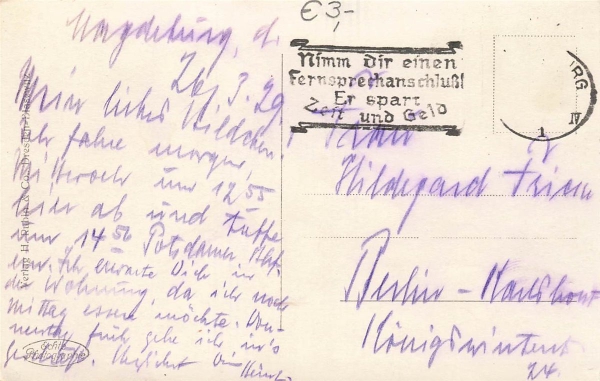 € 3,-
Magdeburg, d.
26.3.29
Mein liebes Hildchen!
Ich fahre morgen,
Mittwoch um 12 55
hier ab und treffe
um 14 56 Potsdamer Bhf.
ein. Ich erwarte Dich in
der Wohnung, da ich noch
Mittag essen möchte. Don-
nerstag früh gehe ich in's
Geschäft. Herzlichst Dein
Nimm dir einen
Fernsprechanschluß!
Er spart
Zeit und Geld
RG
1
IV
Frau
Hildegard
Berlin - Karlshorst
Königswinterst
24
Echte
Photographie